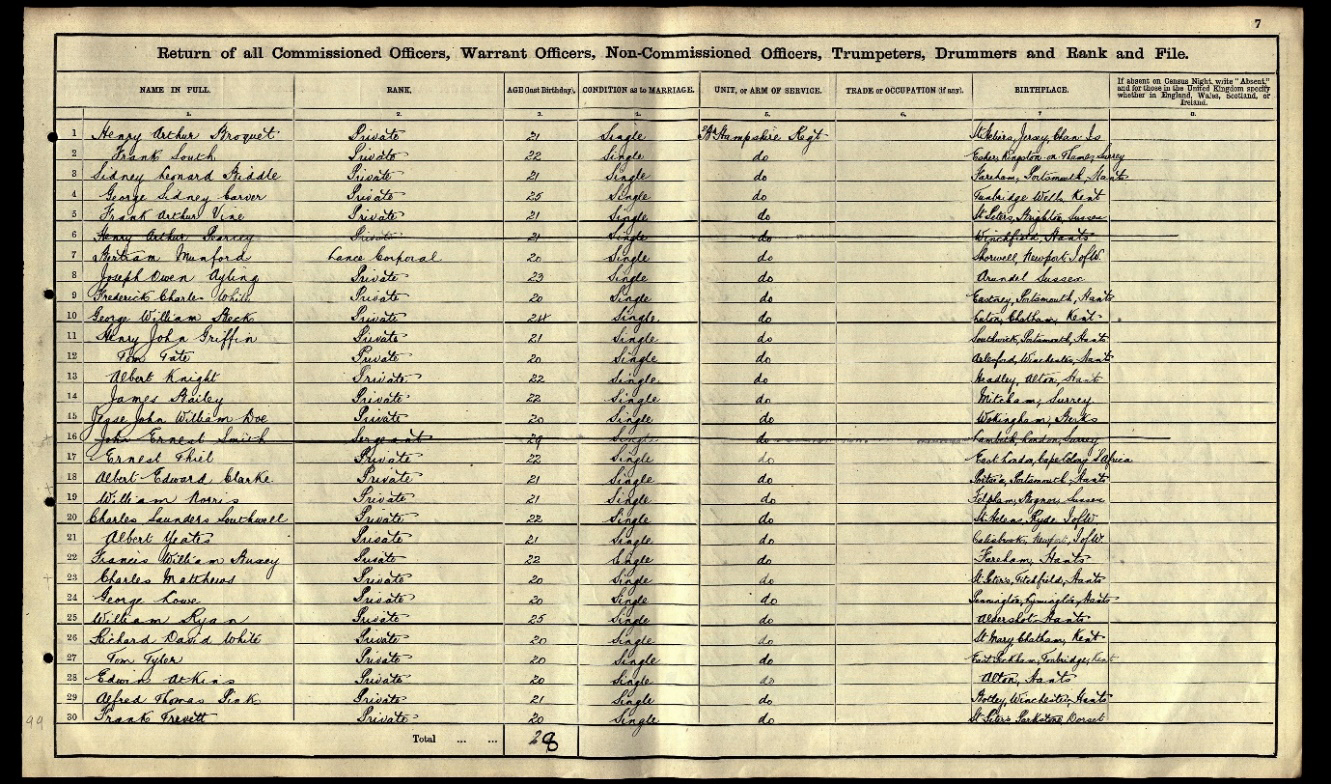 7
Return of all Commissioned Officers, Warrant Officers, Non-Commissioned Officers, Trumpeters, Drummers and Rank and File.
NAME IN FULL. RANK. AGE (last Birthday). CONDITION as to MARRIAGE. UNIT, or ARM OF SERVICE. TRADE or OCCUPATION (if any). BIRTHPLACE. If absent on Census Night, write "Absent," and for those in the United Kingdom specify whether in England, Wales, Scotland, or Ireland.
1. 2. 3. 4. 5. 6. 7. 8.
1 Henry Arthur Broquet Private 21 Single Hampshire Regt St Heliers, Jersey, Chan Is
2 Frank South Private 22 Single do Esher, Kingston on Thames, Surrey
3 Sidney Leonard Biddle Private 21 Single do Fareham, Portsmouth, Hants
4 George Sidney Carver Private 25 Single do Tunbridge Wells Kent
5 Frank Arthur Vine Private 21 Single do St Peters, Brighton, Sussex
6 Henry Arthur Pearcey Private 21 Single do Winchfield, Hants
7 Bertram Munford Lance Corporal 20 Single do Shorwell, Newport I of W.
8 Joseph Owen Ayling Private 23 Single do Arundel Sussex
9 Frederick Charles White Private 20 Single do Eastney, Portsmouth, Hants
10 George William Beck Private 24 Single do Chatham, Kent
11 Henry John Griffin Private 21 Single do Southwick, Portsmouth, Hants
12 Tom Tate Private 20 Single do Alresford, Winchester, Hants
13 Albert Knight Private 22 Single do Headley, Alton, Hants
14 James Bailey Private 22 Single do Mitcham, Surrey
15 Jesse John William Doe Private 20 Single do Wokingham, Berks
16 John Ernest Smith Sergeant 29 Single do Lambeth, London, Surrey
17 Ernest Thiel Private 22 Single do East London, Cape Colony S Africa
18 Albert Edward Clarke Private 21 Single do Portsea, Portsmouth, Hants
19 William Norris Private 21 Single do Felpham, Bognor, Sussex
20 Charles Saunders Southwell Private 22 Single do St Helens, Ryde I of W.
21 Albert Yeates Private 21 Single do Carisbrook, Newport, I of W.
22 Francis William Hussey Private 22 Single do Fareham, Hants
23 Charles Matthews Private 20 Single do St Peters, Titchfield, Hants
24 George Lowe Private 20 Single do Pennington, Lymington, Hants
25 William Ryan Private 25 Single do Aldershot Hants
26 Richard David White Private 20 Single do St Mary Chatham, Kent
27 Tom Tyler Private 20 Single do East Peckham, Tonbridge, Kent
28 Edwin Atkins Private 20 Single do Alton, Hants
29 Alfred Thomas Pink Private 21 Single do Botley, Winchester, Hants
30 Frank Trevett Private 20 Single do St Peters Parkstone, Dorset
Total ... ... 28